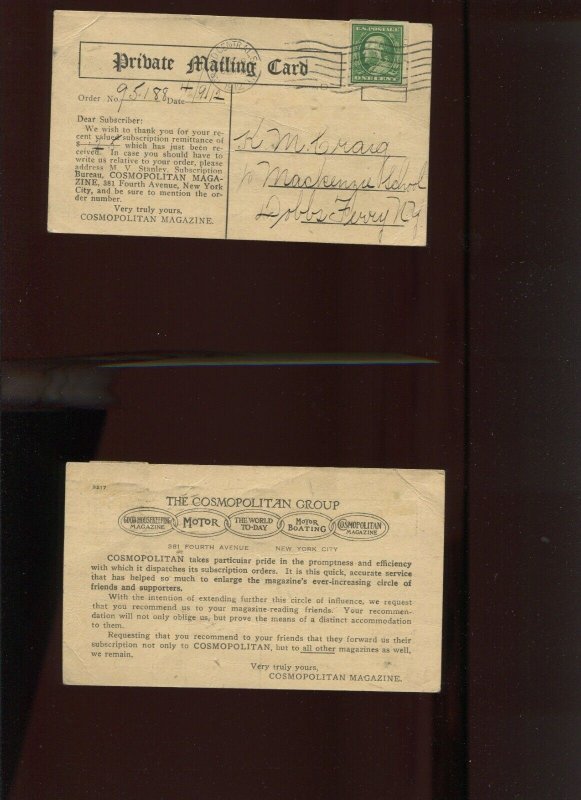 Private Mailing Card
U.S. POSTAGE
ONE CENT
Order No. 95188 Date 4/9/12
Dear Subscriber:
We wish to thank you for your re-
cent valued subscription remittance of
$ which has just been re-
ceived. In case you should have to
write us relative to your order, please
address M. V. Stanley, Subscription
Bureau, COSMOPOLITAN MAGA-
ZINE, 381 Fourth Avenue, New York
City, and be sure to mention the or-
der number.
Very truly yours,
COSMOPOLITAN MAGAZINE.
K M Craig
Mackenzie School
Dobbs Ferry N.Y.
THE COSMOPOLITAN GROUP
GOOD HOUSEKEEPING MAGAZINE MOTOR THE WORLD TO-DAY MOTOR BOATING COSMOPOLITAN MAGAZINE
381 FOURTH AVENUE NEW YORK CITY
COSMOPOLITAN takes particular pride in the promptness and efficiency
with which it dispatches its subscription orders. It is this quick, accurate service
that has helped so much to enlarge the magazine's ever-increasing circle of
friends and supporters.
With the intention of extending further this circle of influence, we request
that you recommend us to your magazine-reading friends. Your recommen-
dation will not only oblige us, but prove the means of a distinct accommodation
to them.
Requesting that you recommend to your friends that they forward us their
subscription not only to COSMOPOLITAN, but to all other magazines as well,
we remain.
Very truly yours,
COSMOPOLITAN MAGAZINE.